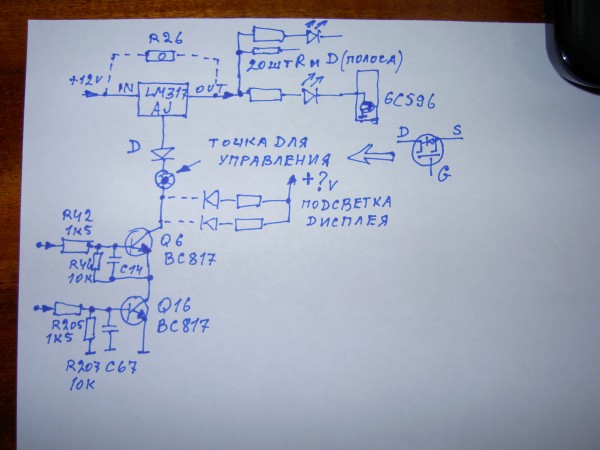 R26
0
+12V
IN
LM317
OUT
AJ
20штR и D (полоса)
6C596
D
ТОЧКА ДЛЯ
УПРАВЛЕНИЯ
D
S
G
+?V
ПОДСВЕТКА
ДИСПЛЕЯ
R42
1K5
R46
10K
C14
Q6
BC817
R205
1K5
Q16
BC817
R207
C67
10K